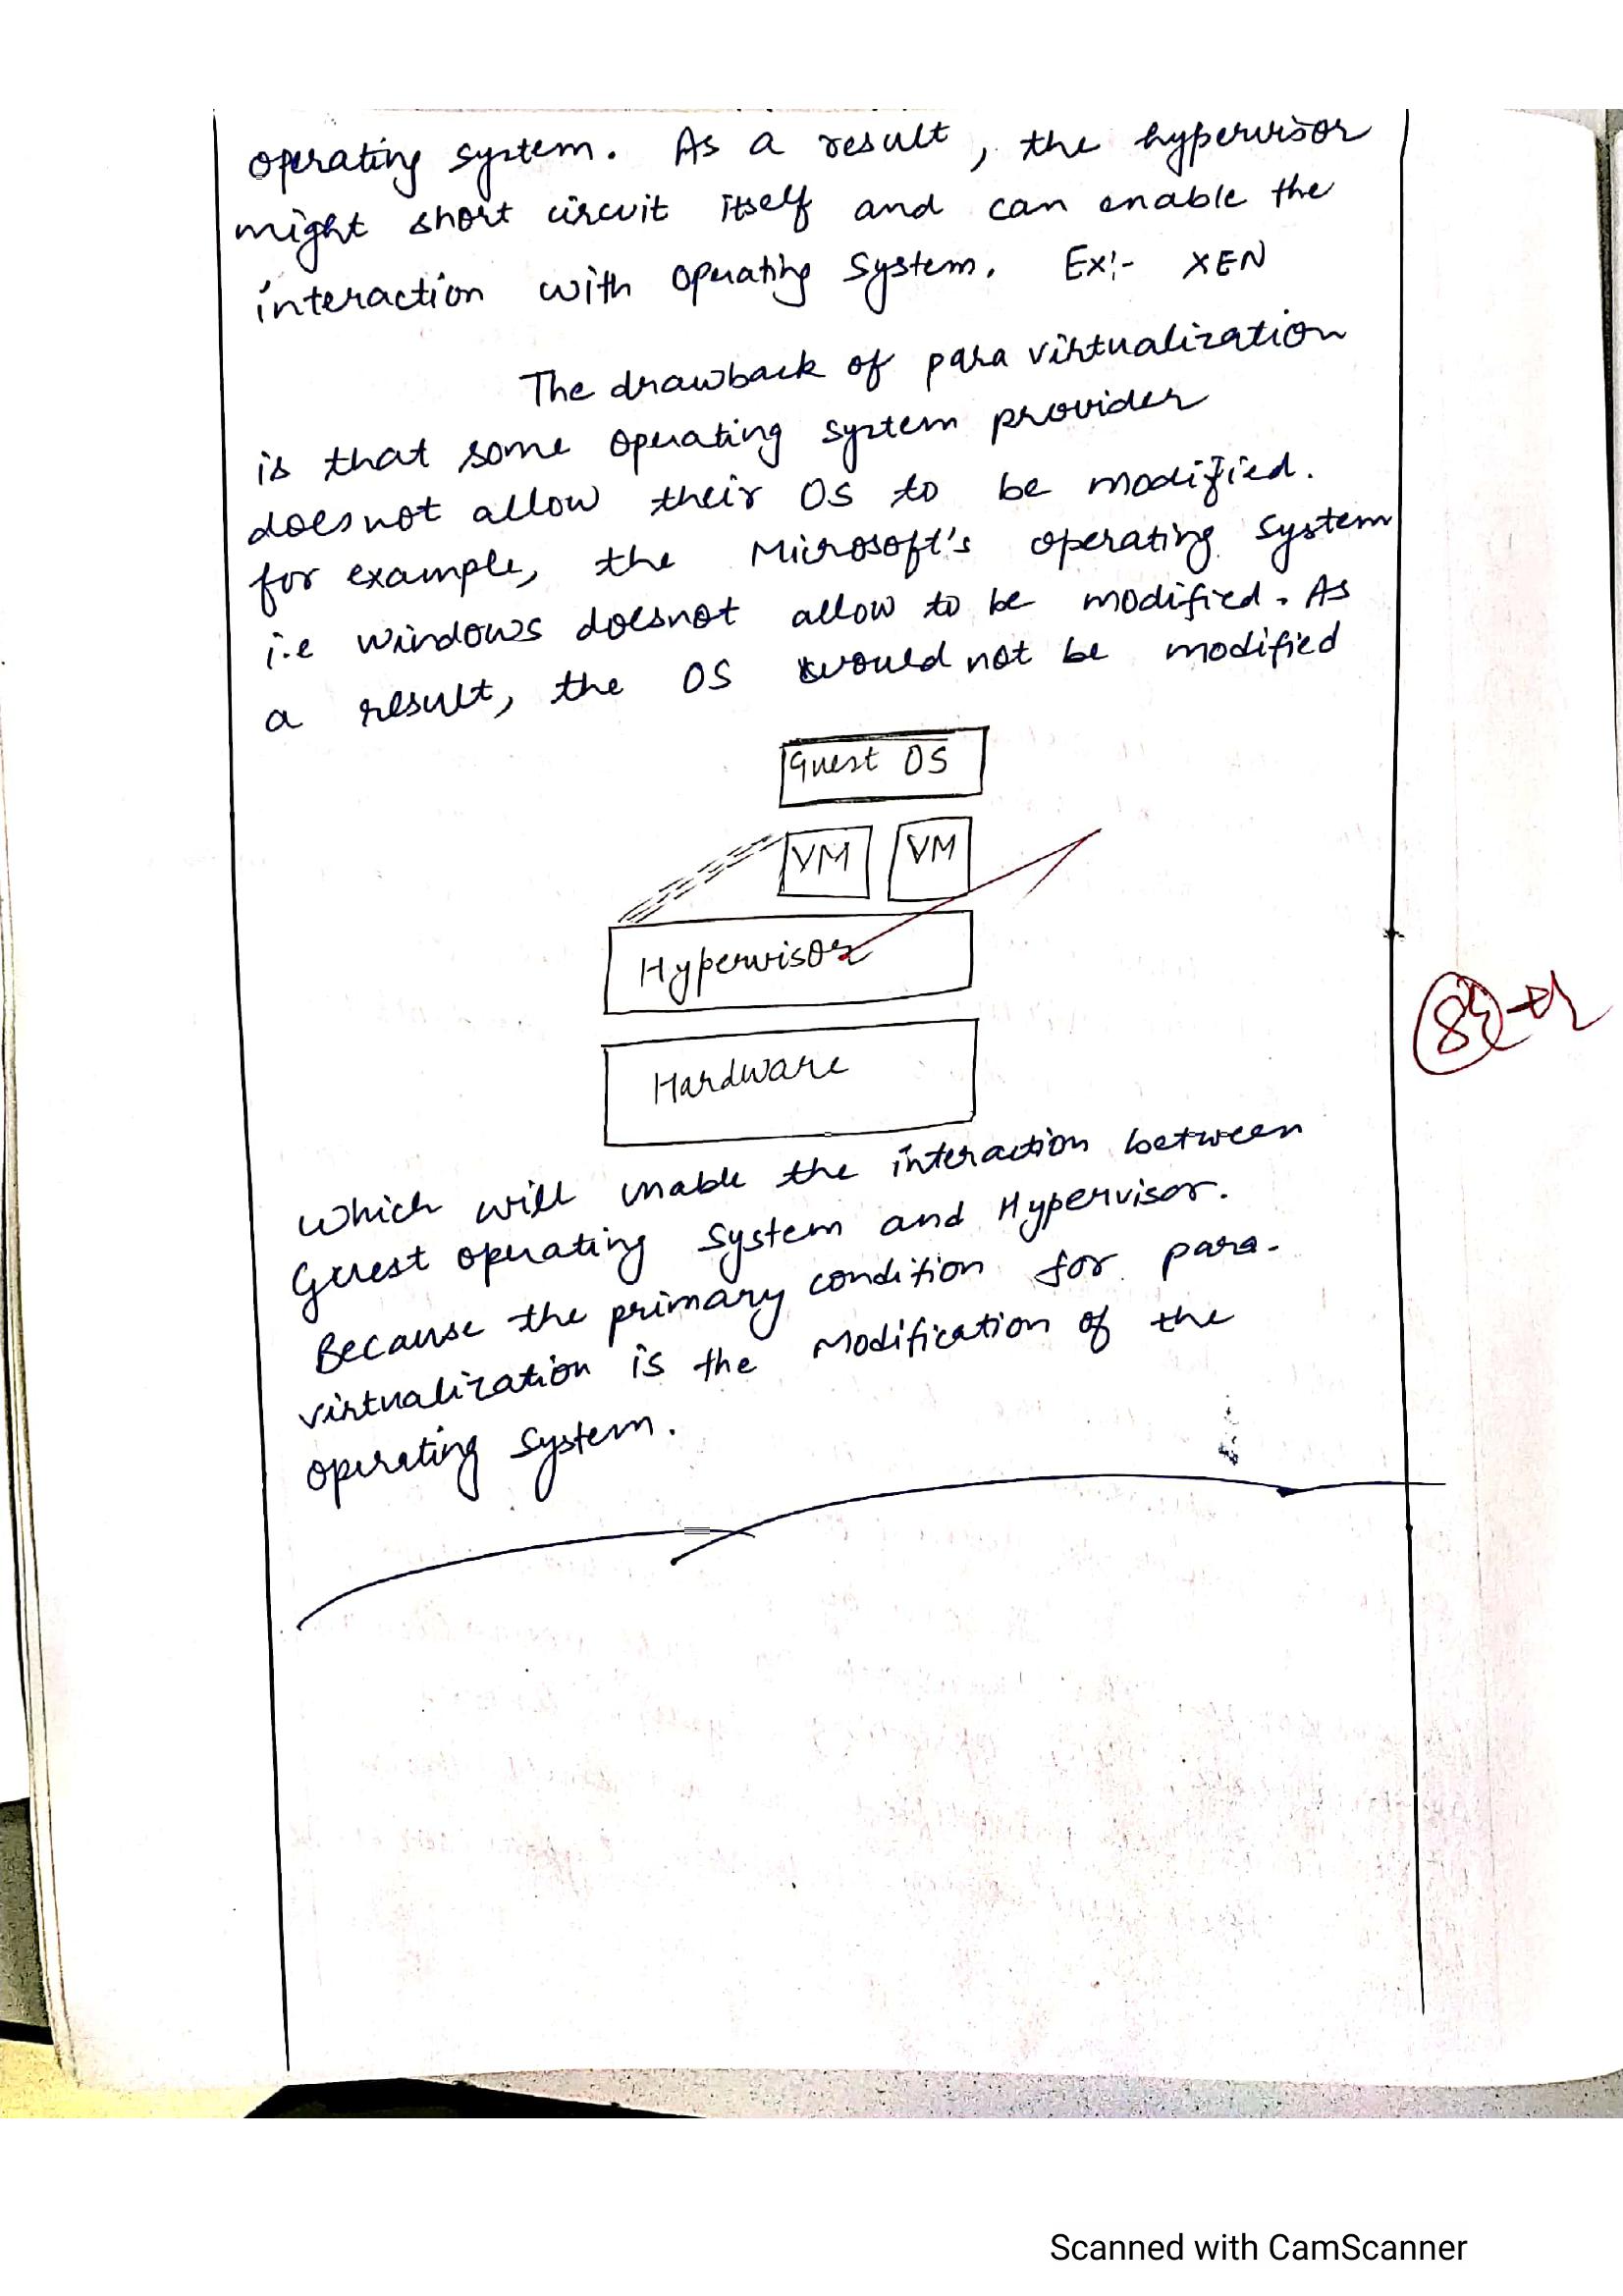 operating system. As a result, the hypervisor
might short circuit itself and can enable the
interaction with operating system. Ex:- XEN
The drawback of para virtualization
is that some operating system provider
doesnot allow their OS to be modified.
for example, the Microsoft's operating system
i.e windows doesnot allow to be modified. As
a result, the OS would not be modified
Guest OS
VM VM
Hypervisor
Hardware
which will unable the interaction between
Guest operating system and Hypervisor.
Because the primary condition for para-
virtualization is the Modification of the
operating system.
Scanned with CamScanner